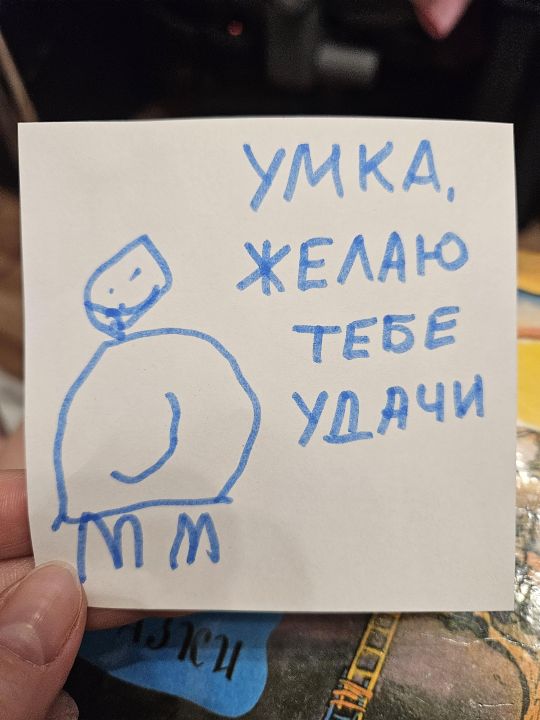 УМКА,
ЖЕЛАЮ
ТЕБЕ
УДАЧИ